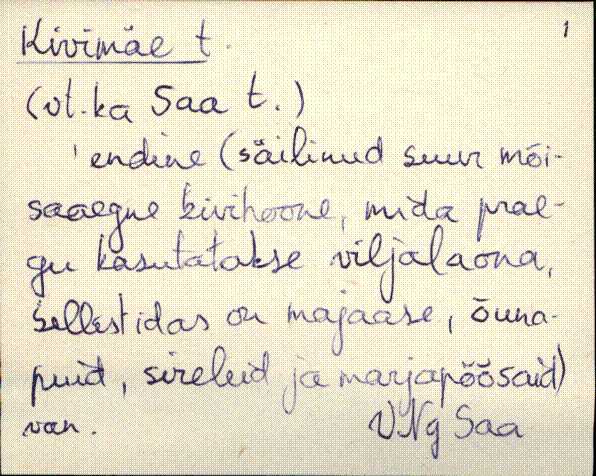 Kivimäe t. 1
(vt. ka Saa t.)
'endine (säilinud suur mõi-
saaegne kivihoone, mida prae-
gu kasutatakse viljalaona,
sellest idas on majaase, õuna-
puid, sireleid ja marjapõõsaid)
van. VNg Saa